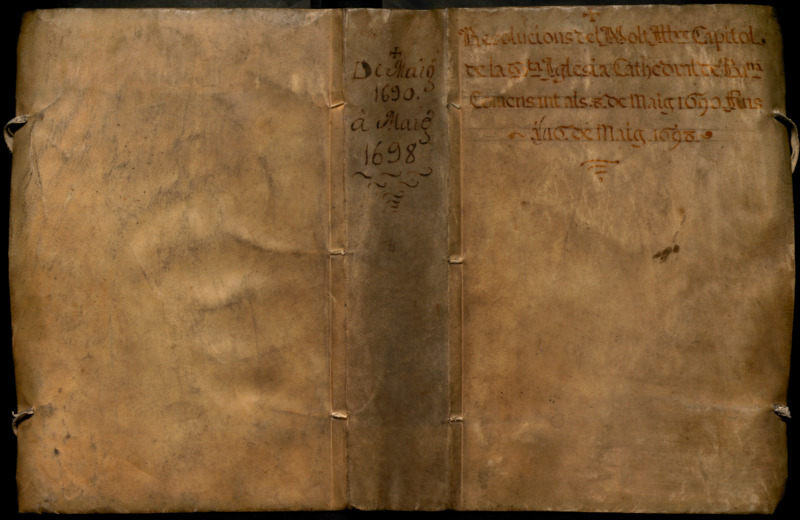 De Maig
1690.
â Maig
1698
Resolucions del Molt Iltre Capitol
de la Sta Iglesia Cathedral de Barna
Comensant als 8 de Maig 1690 fins
Als 6 de Maig 1698